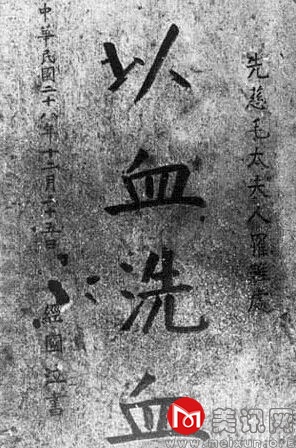 先慈毛太夫人罹難處
以血洗血
中華民國二十八年十二月十五日 經國泣書
美讯网